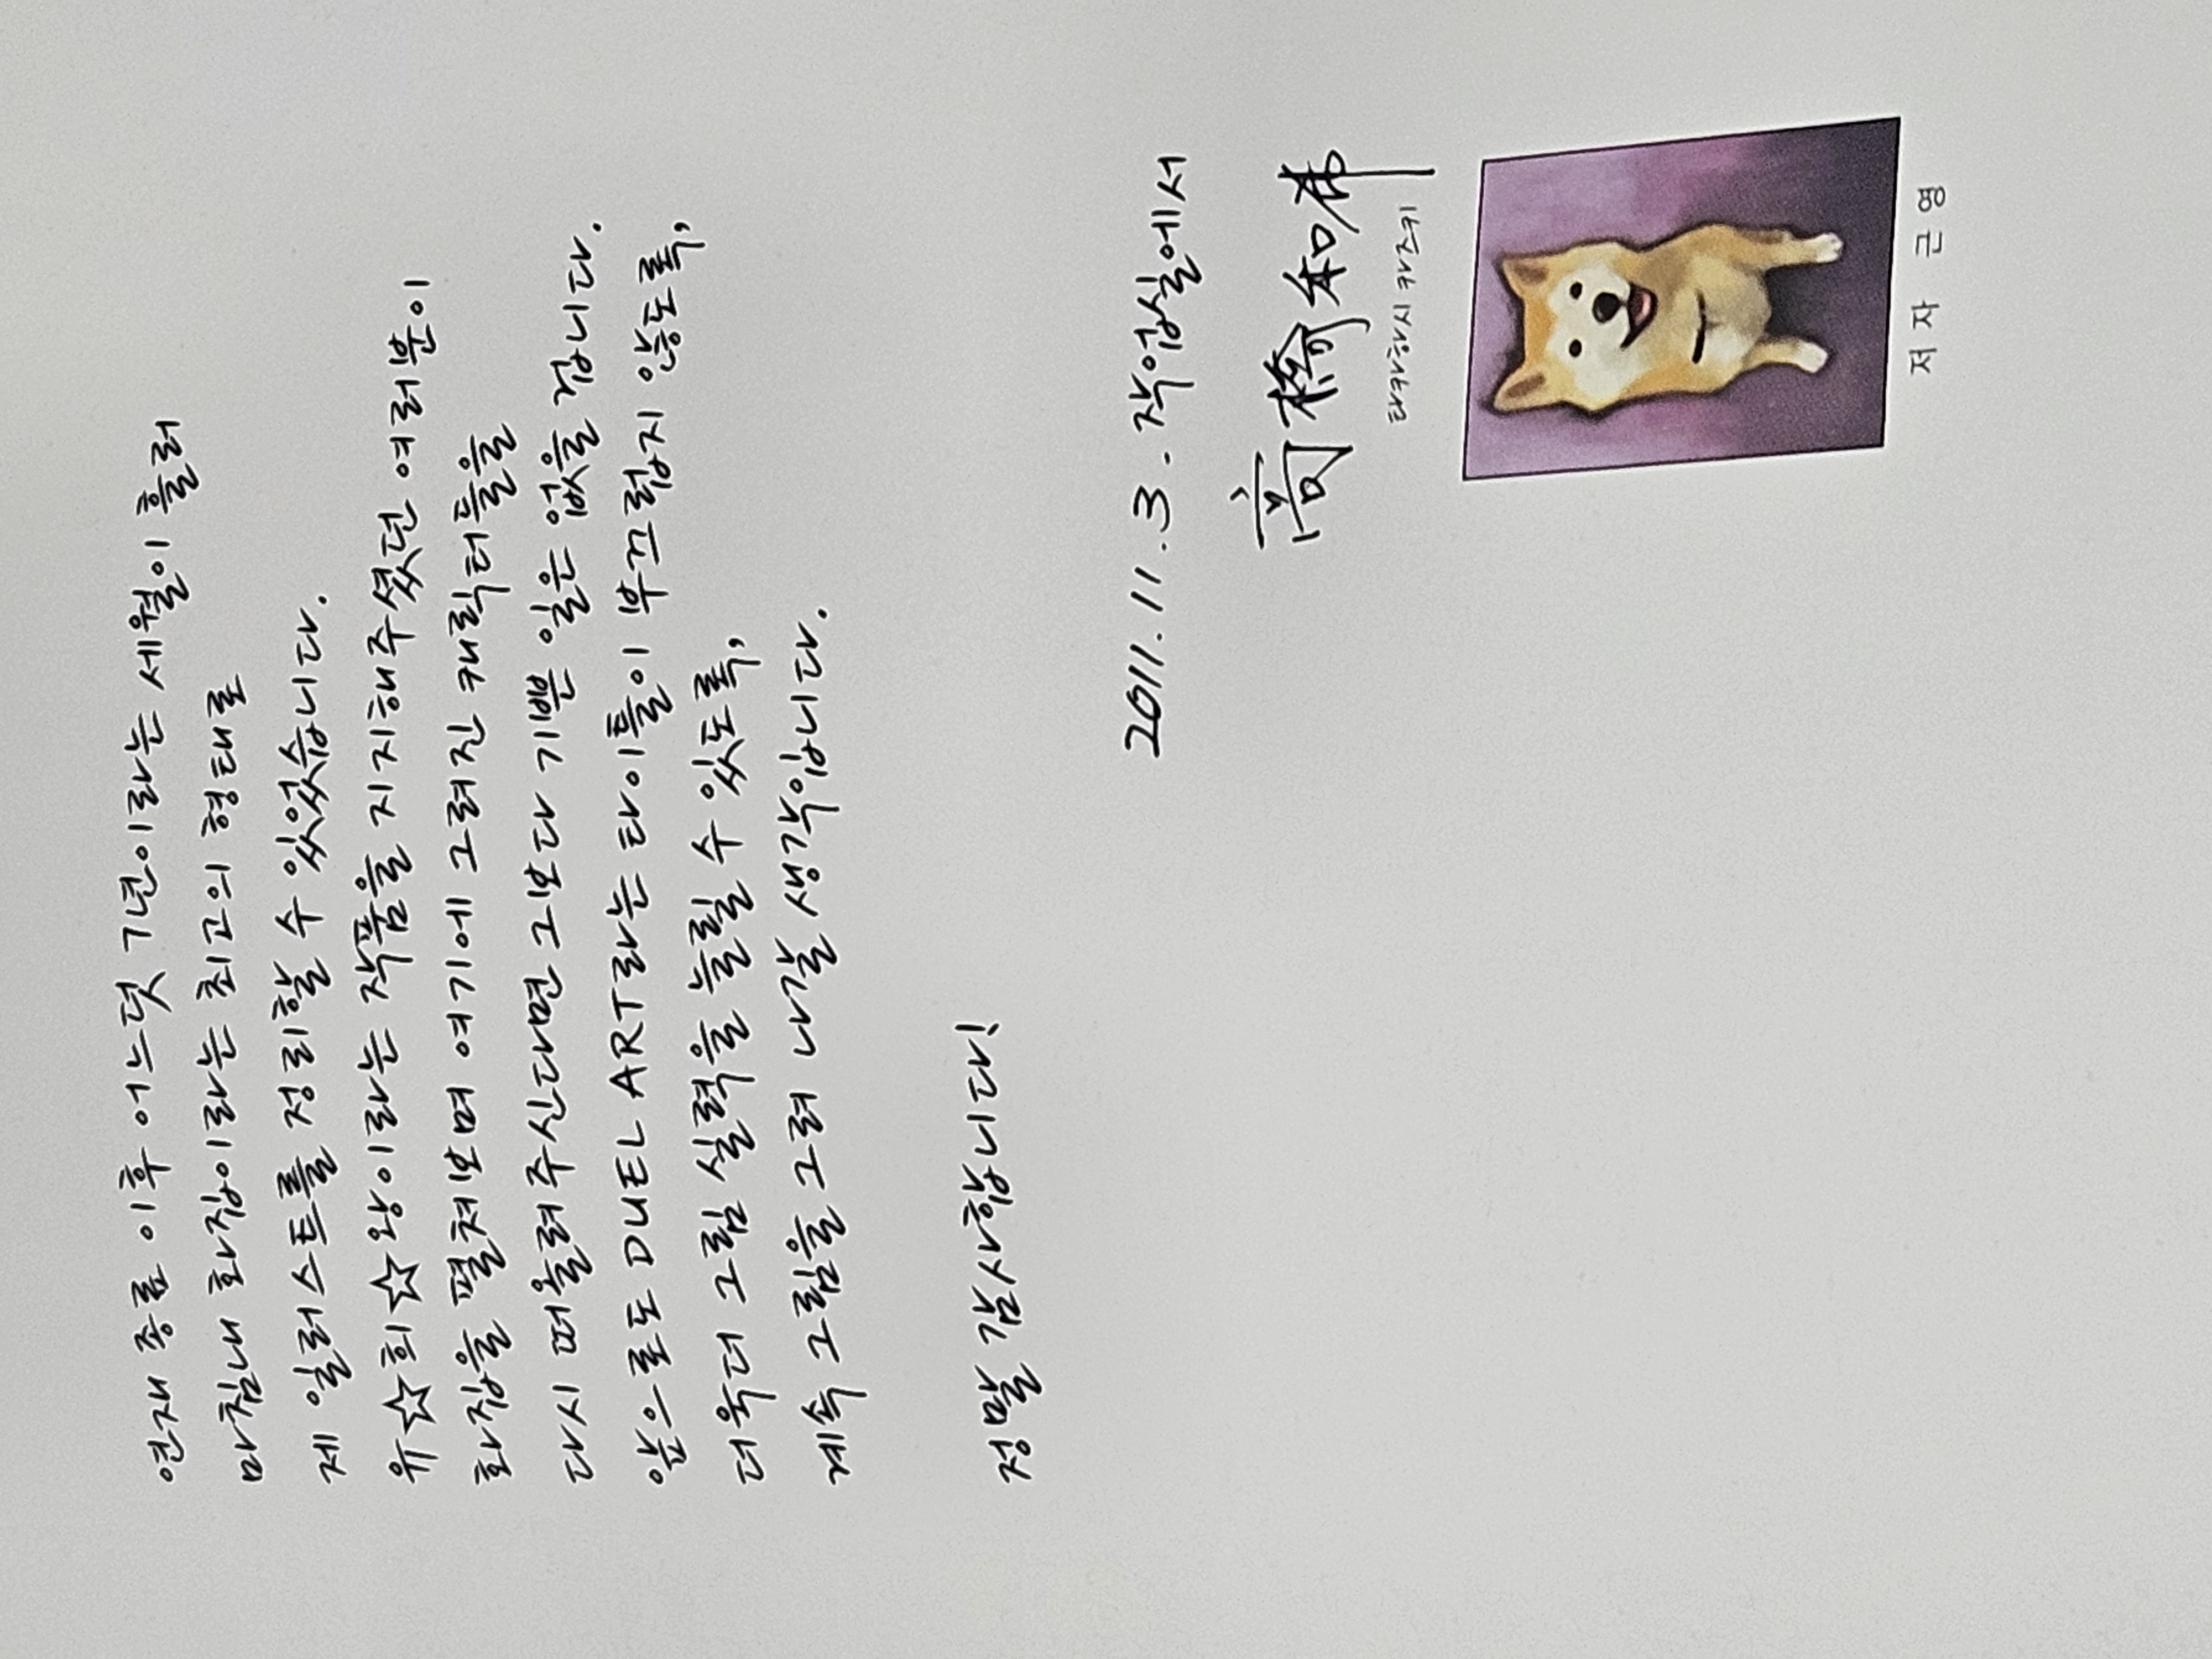 연재 종료 이후 어느덧 7년이라는 세월이 흘러
마침내 화집이라는 최고의 형태로
제 일러스트를 정리할 수 있었습니다.
유☆희☆왕이라는 작품을 지지해주셨던 여러분이
화집을 펼쳐보며 여기에 그려진 캐릭터들을
다시 떠올려주신다면 그보다 기쁜 일은 없을 겁니다.
앞으로도 DUEL ART라는 타이틀이 부끄럽지 않도록,
더욱더 그림 실력을 늘릴 수 있도록,
계속 그림을 그려 나갈 생각입니다.
정말 감사합니다!
2011. 11. 3. 작업실에서
高橋和希
타카하시 카즈키
저자 근영